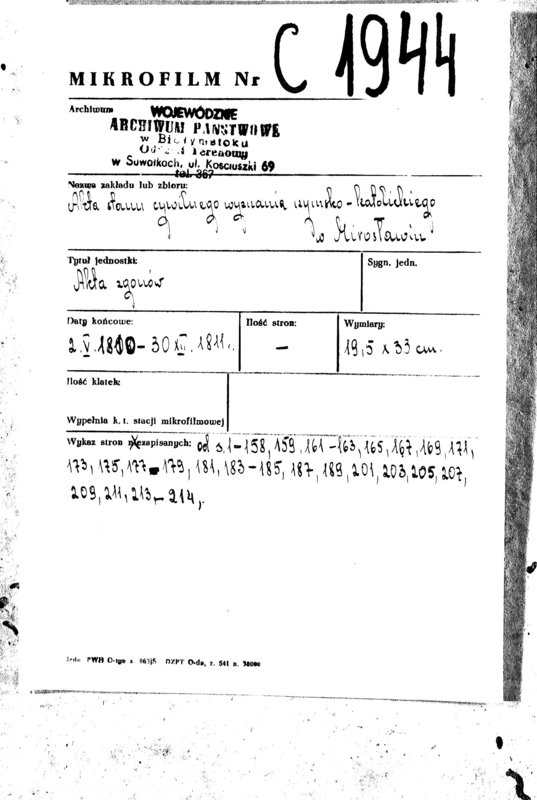 MIKROFILM Nr C 1944
Archiwum
WOJEWÓDZKIE
ARCHIWUM PAŃSTWOWE
w Białymstoku
Oddział Terenowy
w Suwałkach, ul. Kościuszki 69
tel. 367
Nazwa zakładu lub zbioru:
Akta stanu cywilnego wyznania rzymsko-katolickiego
w Mirosławiu
Tytuł jednostki:
Akta zgonów
Sygn. jedn.
Daty końcowe:
2.V.1810-30 XII.1811.
Ilość stron:
—
Wymiary:
19,5 x 33 cm.
Ilość klatek:
Wypełnia k. t. stacji mikrofilmowej
Wykaz stron niezapisanych: od s. 1-158, 159, 161-163, 165, 167, 169, 171,
173, 175, 177-179, 181, 183-185, 187, 189, 201, 203, 205, 207,
209, 211, 213-214,.
DZPT O-da, z. 541 n. 50000